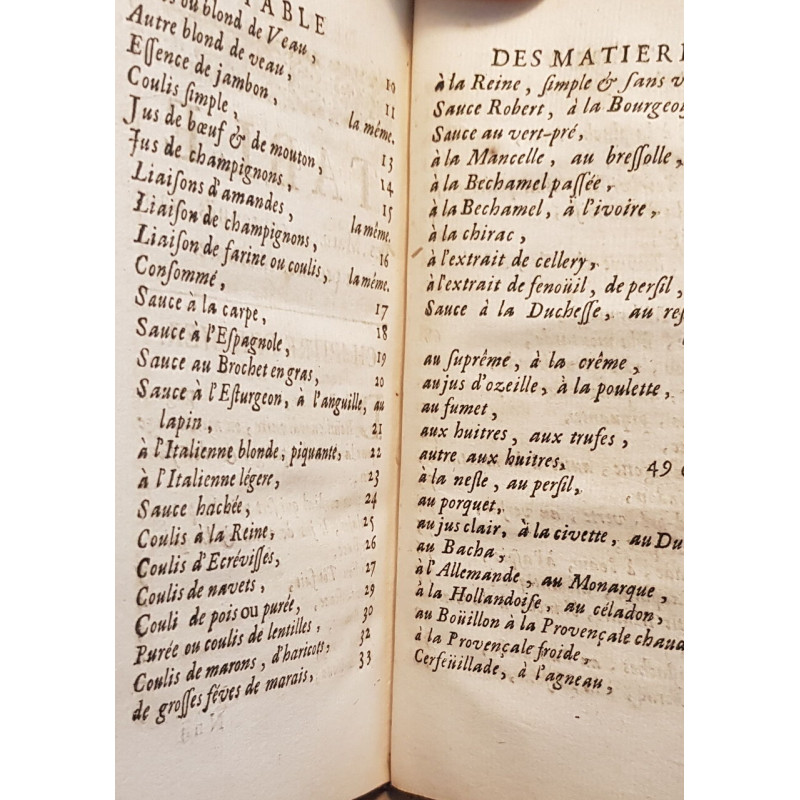 TABLE
ou blond de Veau,
Autre blond de veau, 10
Eſſence de jambon, 11
Coulis ſimple, la même.
Jus de bœuf & de mouton, 13
Jus de champignons, 14
Liaiſons d'amandes, 15
Liaiſon de champignons, la même.
Liaiſon de farine ou coulis, 16
Conſommé, la même.
Sauce à la carpe, 17
Sauce à l'Eſpagnole, 18
Sauce au Brochet en gras, 19
Sauce à l'Eſturgeon, à l'anguille, au 20
lapin, 21
à l'Italienne blonde, piquante, 22
à l'Italienne légere, 23
Sauce hachée, 24
Coulis à la Reine, 25
Coulis d'Ecréviſſes, 26
Coulis de navets, 27
Couli de pois ou purée, 29
Purée ou coulis de lentilles, 30
Coulis de marons, d'haricots, 32
de groſſes féves de marais, 33
DES MATIERE
à la Reine, ſimple & ſans v
Sauce Robert, à la Bourgeoiſ
Sauce au vert-pré,
à la Mancelle, au breſſolle,
à la Bechamel paſſée,
à la Bechamel, à l'ivoire,
à la chirac,
à l'extrait de cellery,
à l'extrait de fenoüil, de perſil,
Sauce à la Ducheſſe, au reſ
au ſuprême, à la crême,
au jus d'ozeille, à la poulette,
au fumet,
aux huitres, aux trufes,
autre aux huitres, 49
à la neſle, au perſil,
au porquet,
au jus clair, à la civette, au Du
au Bacha,
à l'Allemande, au Monarque,
à la Hollandoiſe, au céladon,
au Boüillon à la Provençale chaud
à la Provençale froide,
Cerfeüillade, à l'agneau,